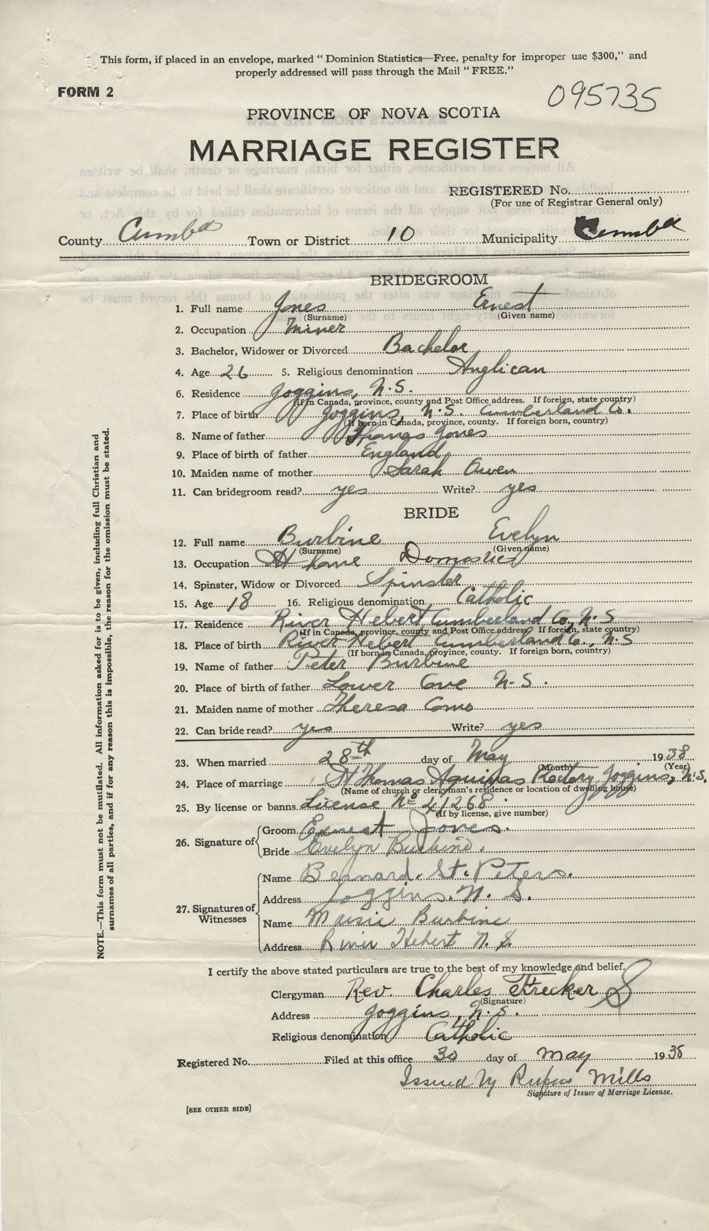 This form, if placed in an envelope, marked "Dominion Statistics—Free, penalty for improper use $300," and
properly addressed will pass through the Mail "FREE."
FORM 2
095735
PROVINCE OF NOVA SCOTIA
MARRIAGE REGISTER
REGISTERED No.
(For use of Registrar General only)
County Cumbd Town or District 10 Municipality Cumbd
BRIDEGROOM
1. Full name Jones Ernest
(Surname) (Given name)
2. Occupation Miner
3. Bachelor, Widower or Divorced Bachelor
4. Age 26 5. Religious denomination Anglican
6. Residence Joggins, N.S.
(If in Canada, province, county and Post Office address. If foreign, state country)
7. Place of birth Joggins, N.S. Cumberland Co.
(If born in Canada, province, county. If foreign born, country)
8. Name of father Thomas Jones
9. Place of birth of father England
10. Maiden name of mother Sarah Owen
11. Can bridegroom read? yes Write? yes
BRIDE
12. Full name Burbine Evelyn
(Surname) (Given name)
13. Occupation At home Domestic
14. Spinster, Widow or Divorced Spinster
15. Age 18 16. Religious denomination Catholic
17. Residence River Hebert Cumberland Co, N.S
(If in Canada, province, county and Post Office address. If foreign, state country)
18. Place of birth River Hebert Cumberland Co, N.S
(If born in Canada, province, county. If foreign born, country)
19. Name of father Peter Burbine
20. Place of birth of father Lower Cove N.S.
21. Maiden name of mother Theresa Como
22. Can bride read? yes Write? yes
23. When married 28th day of May 1938
(Month) (Year)
24. Place of marriage St Thomas Aquinas Rectory Joggins, N.S.
(Name of church or clergyman's residence or location of dwelling house)
25. By license or banns License No 41268
(If by license, give number)
26. Signature of Groom Ernest Jones.
Bride Evelyn Burbine.
27. Signatures of Witnesses Name Bernard. St. Peters.
Address Joggins. N. S.
Name Maisie Burbine
Address River Hebert N. S.
I certify the above stated particulars are true to the best of my knowledge and belief.
Clergyman Rev. Charles Frecker
(Signature)
Address Joggins, N.S.
Religious denomination Catholic
Registered No. Filed at this office 30 day of May 1938
Issued by Rufus Mills
Signature of Issuer of Marriage License.
[SEE OTHER SIDE]
NOTE.—This form must not be mutilated. All information asked for is to be given, including full Christian and
surnames of all parties, and if for any reason this is impossible, the reason for the omission must be stated.